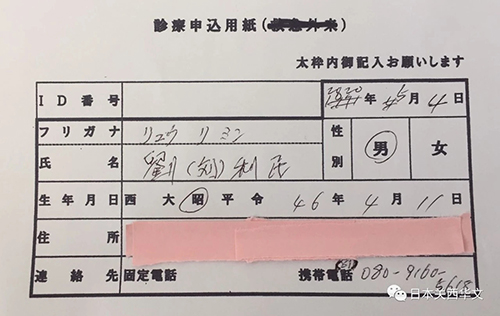 診療申込用紙(救急外来)
太枠内御記入お願いします
ID番号
2020年 5月4日
フリガナ リュウ リミン
氏名 劉(刘)利民
性別 男 女
生年月日 西 大 昭 平 令 46年4月11日
住所
連絡先 固定電話 携帯電話 080-9160-5618
日本关西华文